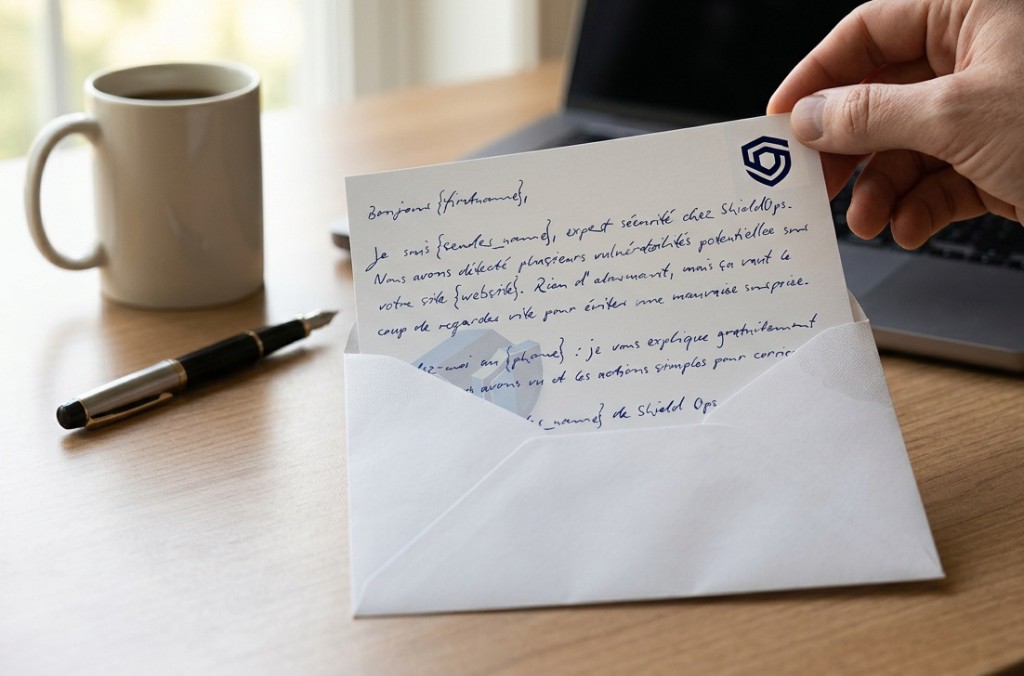 Bonjour {firstname},
Je suis {sender_name}, expert sécurité chez ShieldOps.
Nous avons détecté plusieurs vulnérabilités potentielles sur
votre site {website}. Rien d'alarmant, mais ça vaut le
coup de regarder vite pour éviter une mauvaise surprise.
-moi au {phone} : je vous explique gratuitement
avons vu et les actions simples pour
_name} de Shield Ops